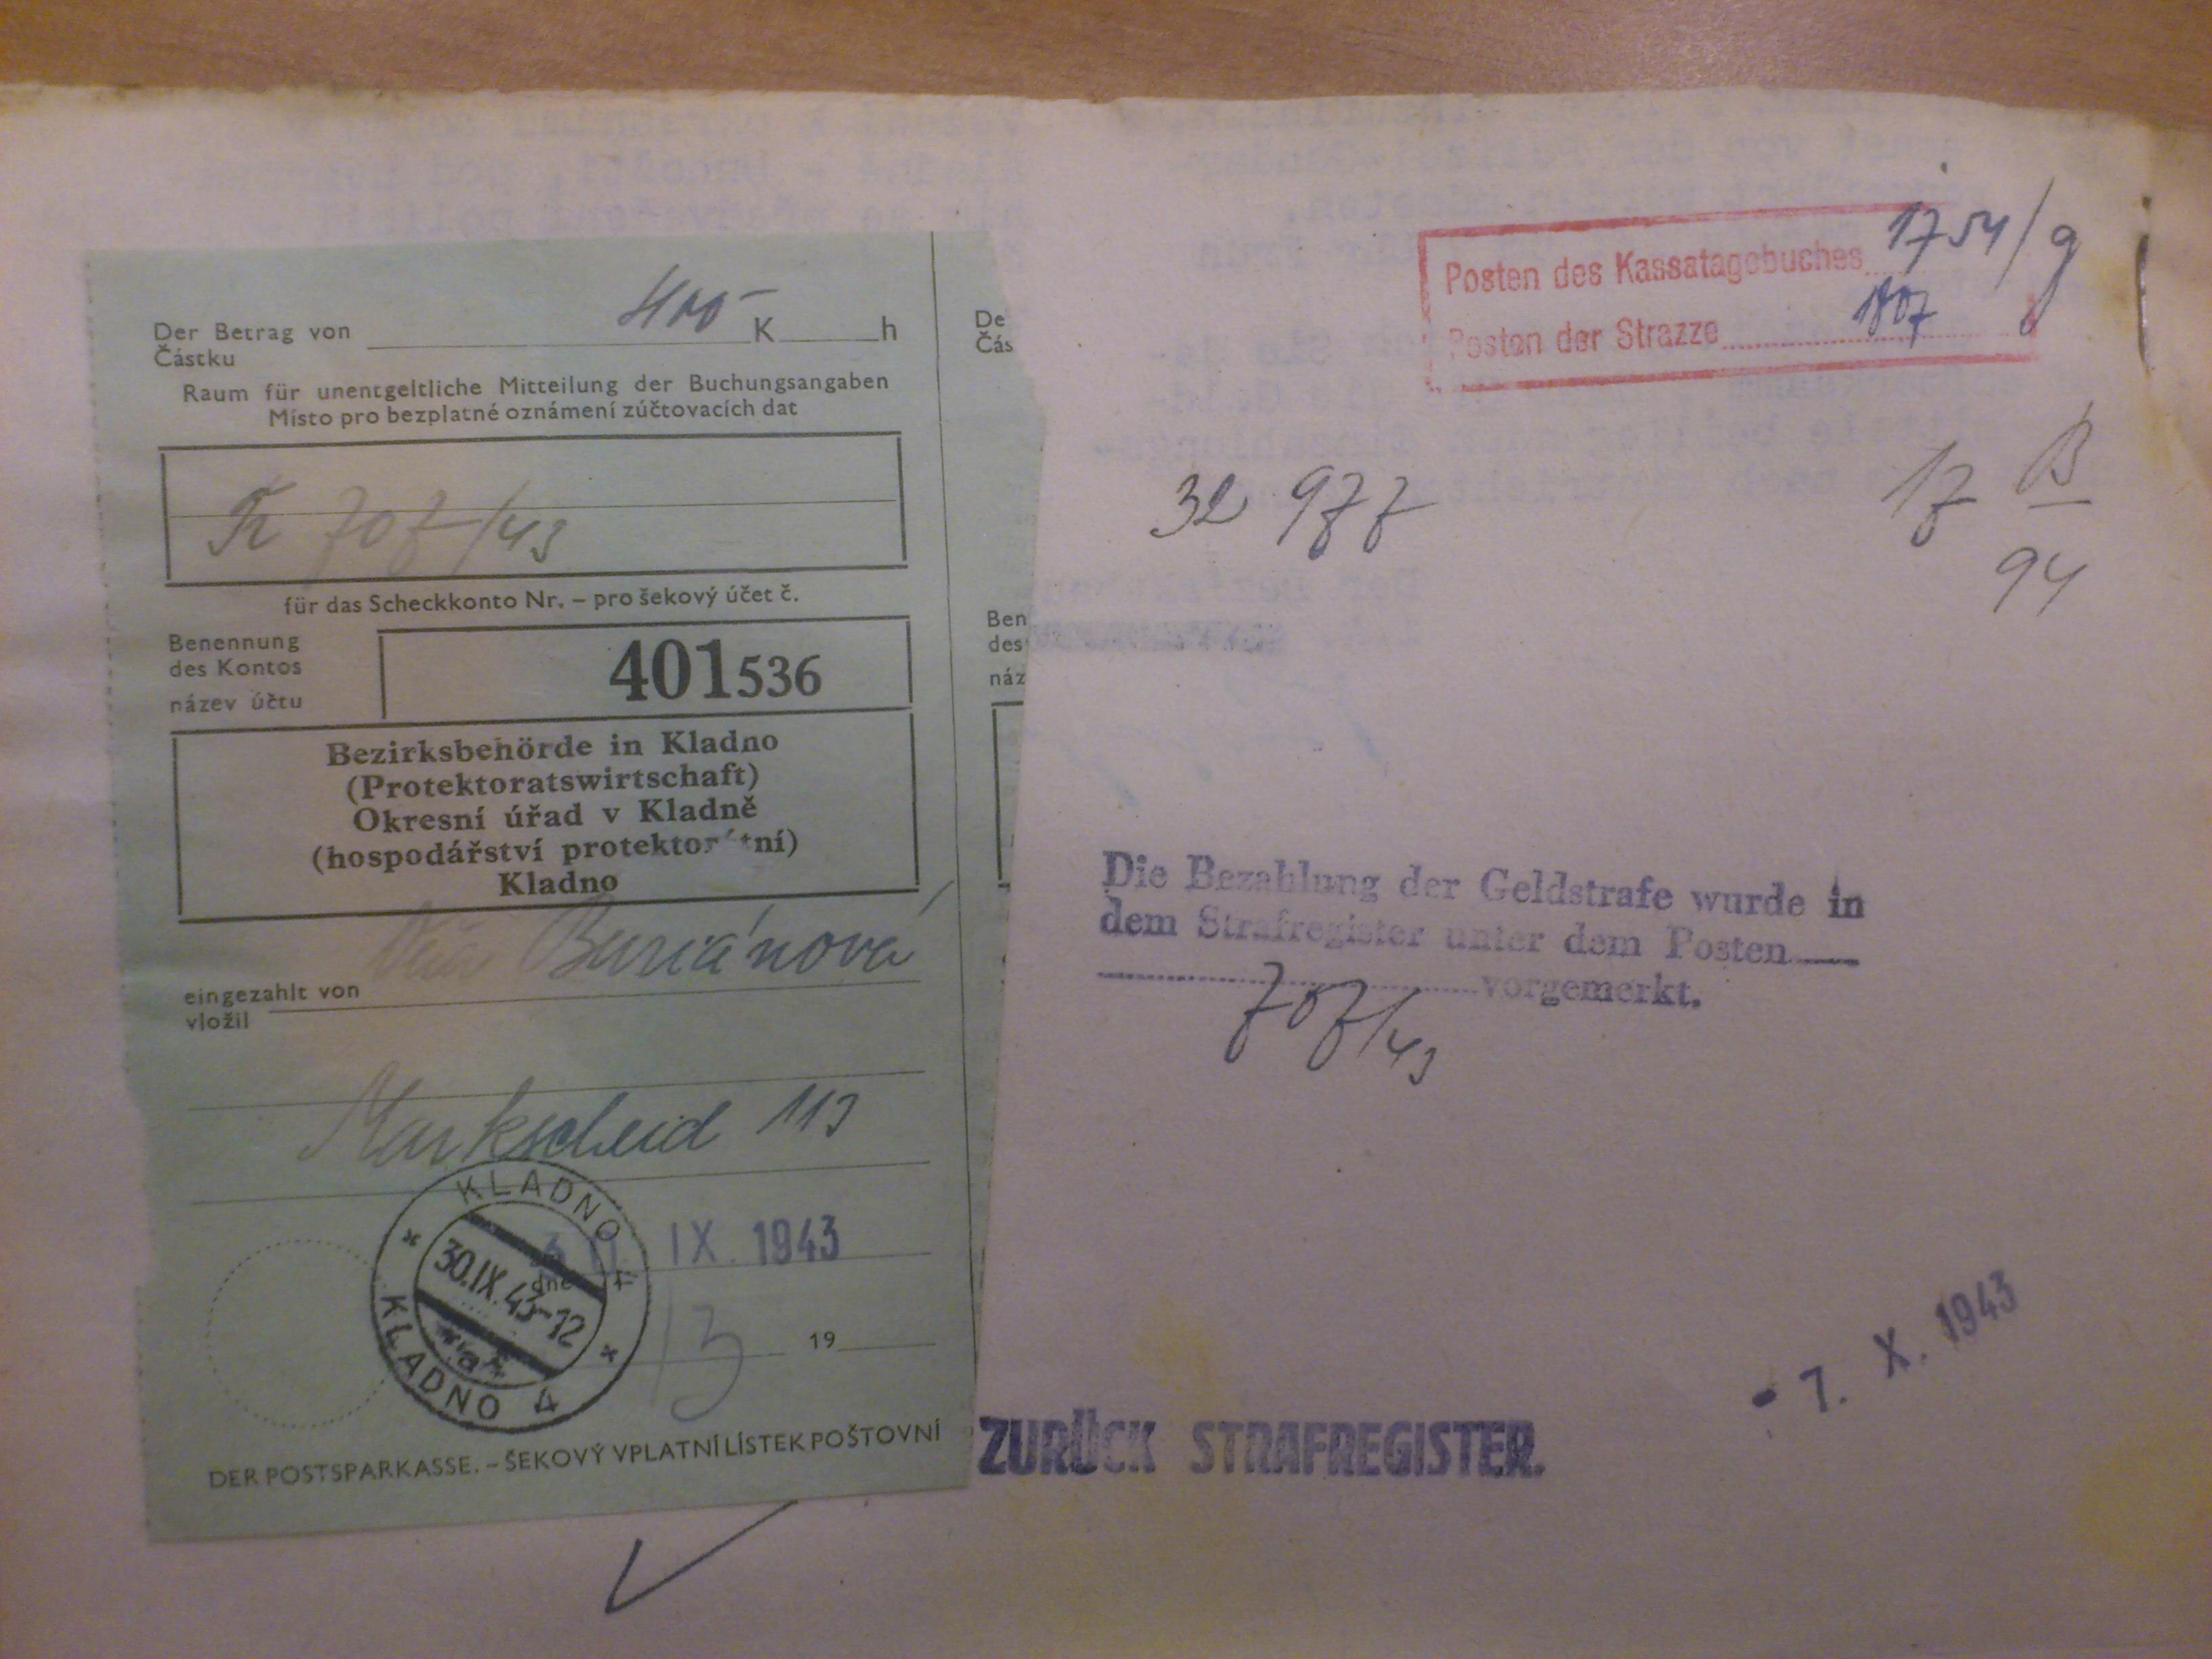 Der Betrag von 400 – K h
Částku
Raum für unentgeltliche Mitteilung der Buchungsangaben
Místo pro bezplatné oznámení zúčtovacích dat
Tr 707/43
für das Scheckkonto Nr. – pro šekový účet č.
Benennung
des Kontos
název účtu
401536
Bezirksbehörde in Kladno
(Protektoratswirtschaft)
Okresní úřad v Kladně
(hospodářství protektorátní)
Kladno
Buriánová
eingezahlt von
vložil
Markscheid 113
KLADNO
IX. 1943
30.IX.43-12
dne
KLADNO 4
13
19
DER POSTSPARKASSE. – ŠEKOVÝ VPLATNÍ LÍSTEK POŠTOVNÍ
De
Čás
Ben
des
náz
Posten des Kassatagebuches 1754/g
Posten der Strazze 1807
32 977
17 B
94
Die Bezahlung der Geldstrafe wurde in
dem Strafregister unter dem Posten
vorgemerkt.
707/43
- 7. X. 1943
ZURÜCK STRAFREGISTER.